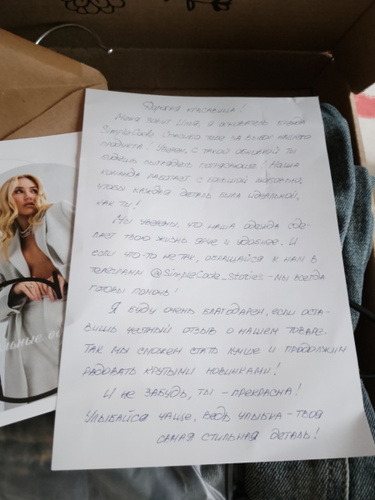 Дорогая красавица!
Меня зовут Lina, я основатель бренда
SimpleCode. Спасибо тебе за выбор нашего
продукта! Уверен, с такой обновкой ты
будешь выглядеть потрясающе! Наша
команда работает с большой любовью,
чтобы каждая деталь была идеальной,
как ты!
Мы уверены, что наша одежда сде-
лает твою жизнь ярче и удобнее. И
если что-то не так, обращайся к нам в
телеграмм @SimpleCode_Stories - мы всегда
готовы помочь!
Я буду очень благодарен, если оста-
вишь честный отзыв о нашем товаре.
Так мы сможем стать лучше и продолжим
радовать крутыми новинками!
И не забудь, ты - прекрасна!
Улыбайся чаще, ведь улыбка - твоя
самая стильная деталь!